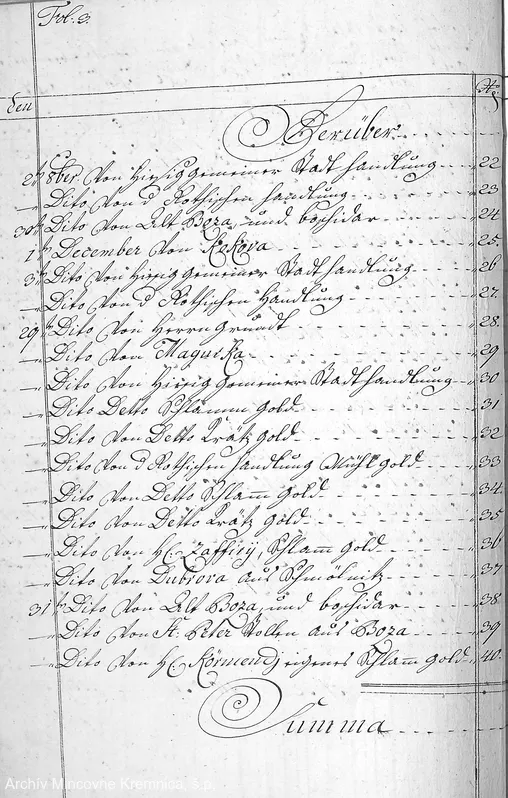 Fol: 3.
den N:
Herüber:
2t 8ber. Von Hiesig gemeiner Stadt handlung 22
— Dito Von d Rothischen handlung 23
30t Dito Von Alt Boza, und bochidar 24
1t December Von Kokova 25.
3t Dito Von Hiesig gemeiner Stadthandlung 26
— Dito Von d Rothischen Handlung 27.
29t Dito Von Herrn Grundt 28.
— Dito Von Magurka 29
— Dito Von Hiesig gemeiner Stadthandlung 30
— Dito Detto Schlamm Gold 31
— Dito Von Detto Krätz gold 32
— Dito Von d Rothischen handlung Mühl gold 33
— Dito Von Detto Schlamm Gold 34.
— Dito Von Detto Krätz gold 35
— Dito Von H: Zaffiry, Schlam gold 36
— Dito Von Dubrova aus Schmölnitz 37
31t Dito Von Alt Boza, und bochidar 38.
— Dito Von St: Peter Stollen aus Boza 39
— Dito Von H: Körmendj eigenes Schlam gold 40.
Summa
Archív Mincovne Kremnica, š.p.